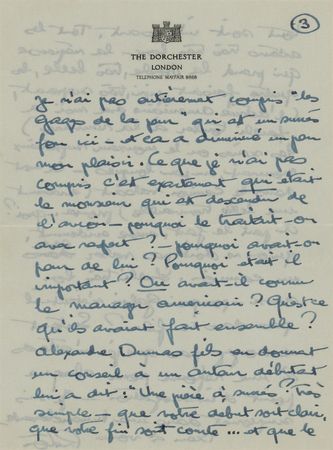 3
THE DORCHESTER
LONDON
TELEPHONE MAYFAIR 8888
je n'ai pas entièrement compris "les
gages de la peur" qui est un succès
fou ici – et ça a diminué un peu
mon plaisir. Ce que je n'ai pas
compris c'est exactement qui était
le monsieur qui est descendu de
l'avion – pourquoi le traitait-on
avec respect? – pourquoi avait-on
peur de lui? Pourquoi était il
important? Où avait-il connu
le manager américain? Qu'est-ce
qu'ils avaient fait ensemble?
Alexandre Dumas fils en donnant
un conseil à un auteur débutant
lui a dit: "Une pièce à succès? Très
simple – que votre début soit clair,
que votre fin soit courte ... et que le